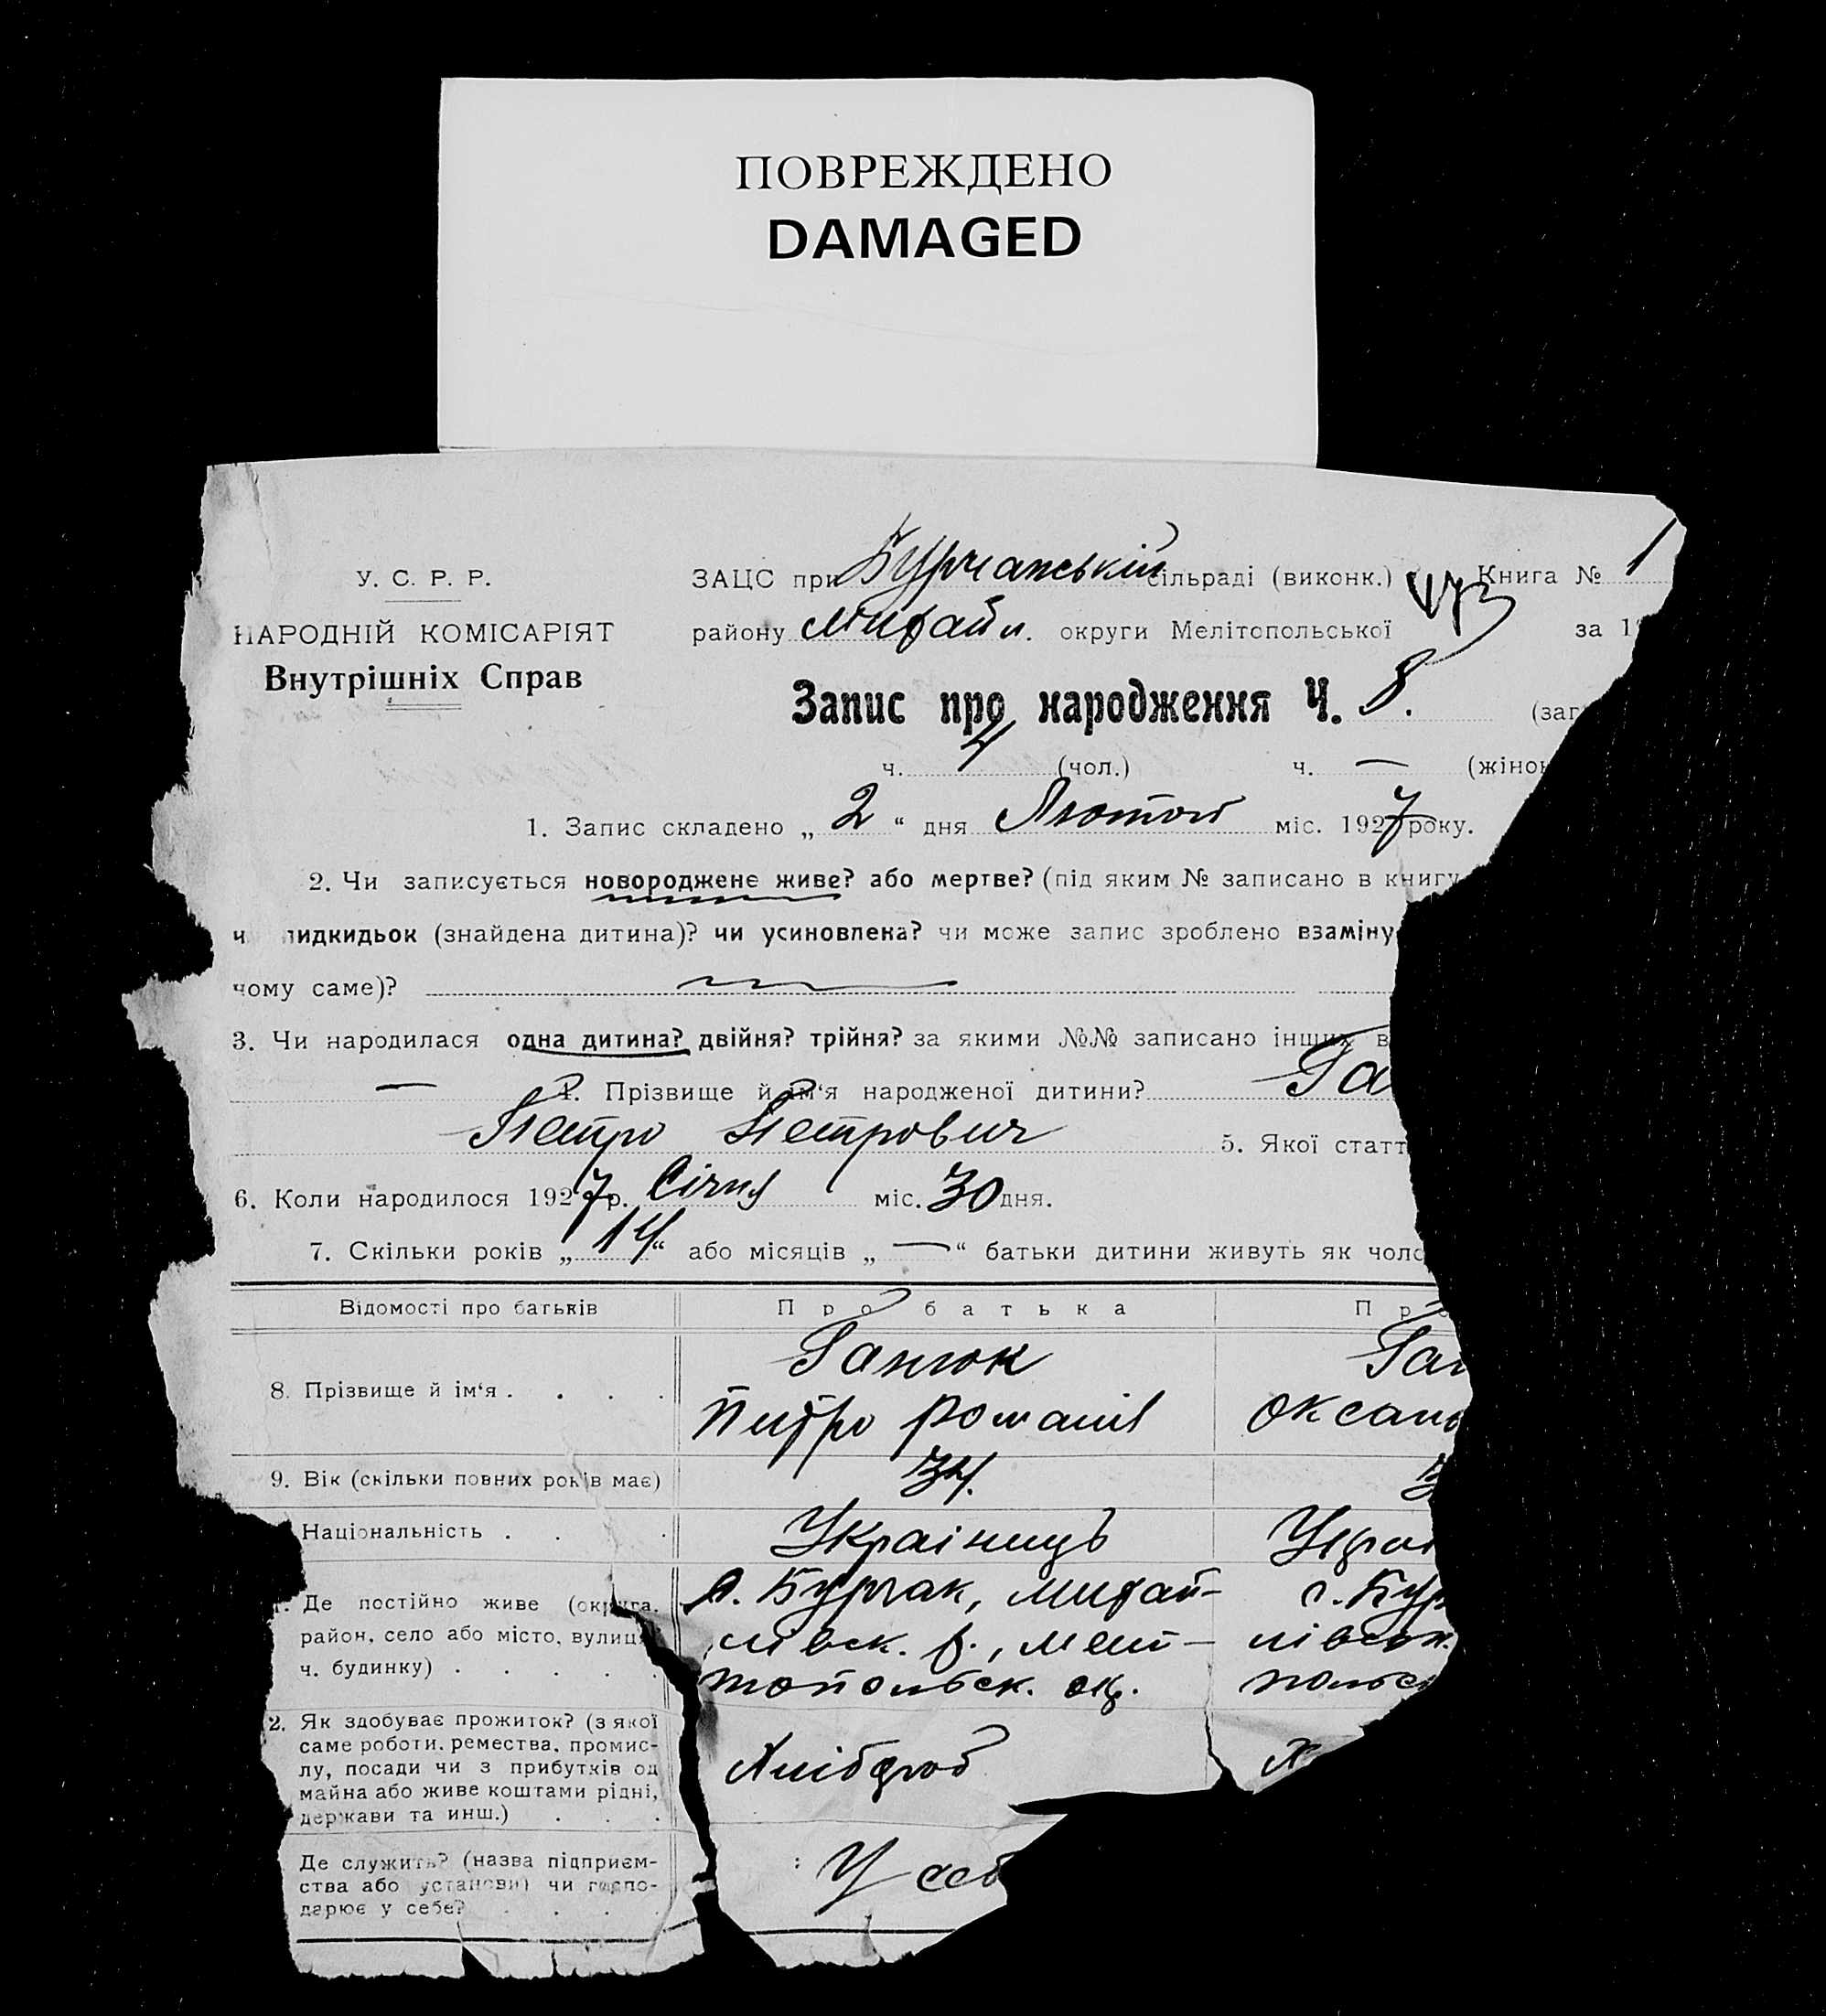 ПОВРЕЖДЕНО
DAMAGED
У. С. Р. Р.
НАРОДНІЙ КОМІСАРІЯТ
Внутрішніх Справ
ЗАЦС при Бурчанській сільраді (виконк.) Книга № 1
району Михайл. округи Мелітопольської за 1
Запис про народження Ч. 8. (заг
ч. 4 (чол.) ч. — (жінок
1. Запис складено „ 2 “ дня Лютого міс. 1927 року.
2. Чи записується новороджене живе? або мертве? (під яким № записано в книгу
ч підкидьок (знайдена дитина)? чи усиновлена? чи може запис зроблено взаміну
чому саме)?
3. Чи народилася одна дитина? двійня? трійня? за якими №№ записано інших в
— 4. Прізвище й ім‘я народженої дитини? Га
Петро Петрович 5. Якої статт
6. Коли народилося 1927 р. Січня міс. 30 дня.
7. Скільки років „ 14 “ або місяців „ — “ батьки дитини живуть як чоло
Відомості про батьків Про батька Пр
8. Прізвище й ім‘я . . . . Ганюк Ган
Питро Романів Оксан
9. Вік (скільки повних років має) 34. 3
Національність . . . Українець Украї
Де постійно живе (округа, с. Бурчак, Михай- с. Бур
район, село або місто, вулиця, лівск. р., Мелі- лівськ.
ч. будинку) . . . . . топольск. окр. польс
2. Як здобуває прожиток? (з якої
саме роботи, ремества, промис-
лу, посади чи з прибутків од Хлібороб Х
майна або живе коштами рідні,
держави та инш.) . . .
Де служить? (назва підприєм-
ства або установи) чи госпо- У себ
дарює у себе? . . . .